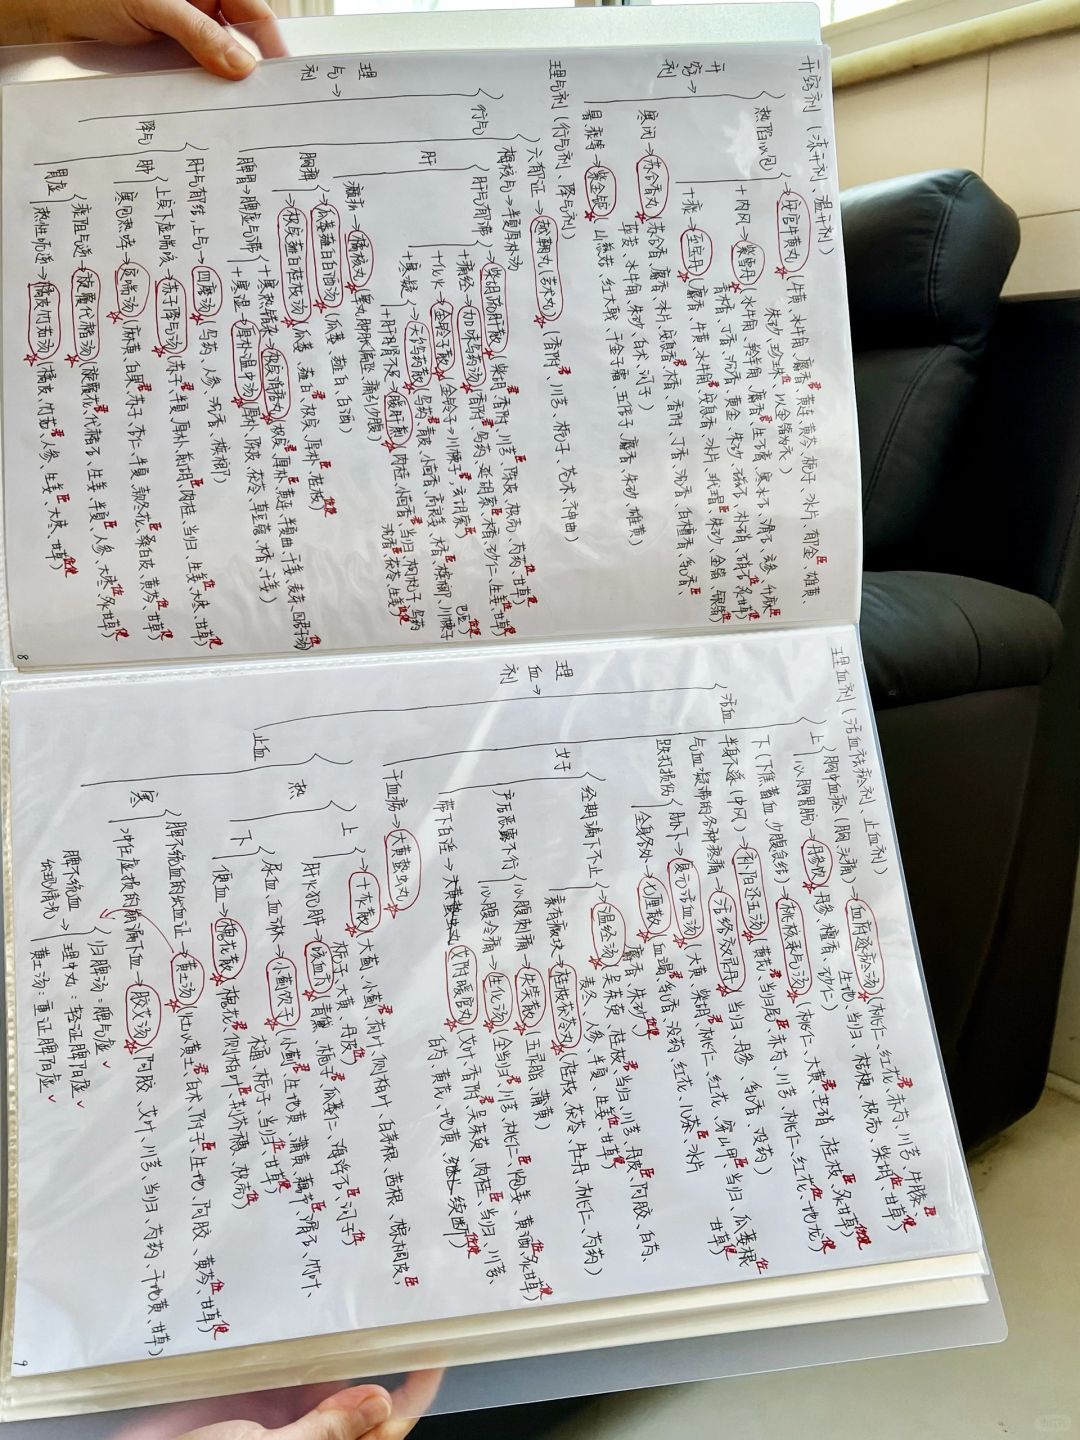 开窍剂（凉开剂、温开剂）
开窍剂→
热陷心包
→安宫牛黄丸（牛黄、水牛角、麝香君、黄连、黄芩、栀子、冰片、郁金、雄黄、
朱砂、珍珠、以金箔为衣）
+内风→紫雪丹（水牛角、羚羊角、麝香君、生石膏、寒水石、滑石、玄参、升麻臣
青木香、丁香、沉香、黄金、朱砂、磁石、朴硝、硝石佐、炙甘草使）
+痰→至宝丹（麝香、牛黄、水牛角、安息香、冰片、玳瑁、朱砂、金箔、银箔）
寒闭→苏合香丸（苏合香、麝香、冰片、安息香君、木香、香附、丁香、沉香、白檀香、乳香、
荜茇、水牛角、朱砂、白术、诃子）
暑、痰等→紫金锭（山慈菇、红大戟、千金子霜、五倍子、麝香、朱砂、雄黄）
理气剂（行气剂、降气剂）
理气剂→
行气
六郁证→越鞠丸（芎术丸）（香附君、川芎、栀子、苍术、神曲）
梅核气→半夏厚朴汤
肝
肝气郁滞→柴胡疏肝散（柴胡君、香附、川芎臣、陈皮、枳壳、芍药佐、甘草使）
+痛经→加味乌药汤（香附君、乌药、延胡索臣、木香、砂仁、生姜佐、甘草使）
+化火→金铃子散（金铃子=川楝子君、玄胡索臣）
+寒凝
天台乌药散（乌药君、青皮、小茴香、高良姜、木香臣、槟榔、川楝子、巴豆佐使）
+肝肾不足→暖肝煎（肉桂、小茴香君、当归、枸杞子、乌药、
沉香臣、茯苓、生姜佐使）
㿗疝→橘核丸（睾丸肿胀偏坠、痛引少腹）
胸痹
瓜蒌薤白白酒汤（瓜蒌、薤白、白酒）
→枳实薤白桂枝汤（瓜蒌、薤白、枳实君、厚朴、桂枝臣佐使）
脾胃→脾虚气滞
+寒热错杂→枳实消痞丸（枳实君、厚朴臣、黄连、半夏曲、干姜、麦芽、四君子汤佐使）
+寒湿→厚朴温中汤（厚朴、陈皮、茯苓、草豆蔻、木香、干姜）
降气
肝气郁结，上气→四磨汤（乌药、人参、沉香、槟榔）
肺
上实下虚喘咳→苏子降气汤（苏子君、半夏、厚朴、前胡臣、肉桂、当归、生姜、大枣佐、甘草使）
寒包热哮→定喘汤（麻黄、白果君、苏子、杏仁、半夏、款冬花臣、桑白皮、黄芩佐、甘草使）
胃虚
痰阻气逆→旋覆代赭汤（旋覆花君、代赭石、生姜、半夏臣、人参、大枣佐、炙甘草使）
热性呃逆→橘皮竹茹汤（橘皮、竹茹君、人参、生姜臣、大枣、甘草佐使）
8
理血剂（活血祛瘀剂、止血剂）
理血剂→
活血
上
胸中血瘀（胸、头痛）→血府逐瘀汤（桃仁、红花君、赤芍、川芎、牛膝臣、
生地、当归、桔梗、枳壳、柴胡佐、甘草使）
心胸胃脘→丹参饮（丹参、檀香、砂仁）
下（下焦蓄血，少腹急结）→桃核承气汤（桃仁、大黄君、芒硝、桂枝臣、炙甘草佐使）
半身不遂（中风）→补阳还五汤（黄芪君、当归尾臣、赤芍、川芎、桃仁、红花佐、地龙使）
气血凝滞的各种疼痛→活络效灵丹（当归、丹参、乳香、没药）
跌打损伤
胁下→复元活血汤（大黄、柴胡君、桃仁、红花、穿山甲臣、当归、瓜蒌根佐
甘草使）
全身各处→七厘散（血竭君、乳香、没药、红花、儿茶臣、冰片
麝香、朱砂佐使）
女子
经期漏下不止
→温经汤（吴茱萸、桂枝君、当归、川芎、丹皮臣、阿胶、白芍、
麦冬、人参、半夏、生姜佐、甘草使）
素有癥块→桂枝茯苓丸（桂枝、茯苓、牡丹、桃仁、芍药）
产后恶露不行
心腹刺痛→失笑散（五灵脂、蒲黄）
心腹冷痛→生化汤（全当归君、川芎、桃仁臣、炮姜、黄酒佐、炙甘草使）
带下白淫→艾附暖宫丸（艾叶、香附君、吴茱萸、肉桂臣、当归、川芎、
白芍、黄芪、地黄、续断佐使）
干血痨→大黄䗪虫丸
止血
热
上
→十灰散（大蓟、小蓟君、荷叶、侧柏叶、白茅根、茜根、棕榈皮臣、
栀子、大黄、丹皮佐）
肝火犯肺→咳血方（青黛、栀子君、瓜蒌仁、海浮石臣、诃子佐）
下
尿血、血淋→小蓟饮子（小蓟君、生地黄、蒲黄、藕节臣、滑石、竹叶、
木通、栀子、当归佐、甘草使）
便血→槐花散（槐花君、侧柏叶臣、荆芥穗、枳壳佐使）
寒
脾不统血的出血证→黄土汤（灶心黄土君、白术、附子臣、生地、阿胶、黄芩佐、甘草使）
冲任虚损的崩漏下血→胶艾汤（阿胶、艾叶、川芎、当归、芍药、干地黄、甘草）
脾不统血
出现情况
→
归脾汤：脾气虚 ✓
理中丸：轻证脾阳虚 ✓
黄土汤：重证脾阳虚 ✓
9